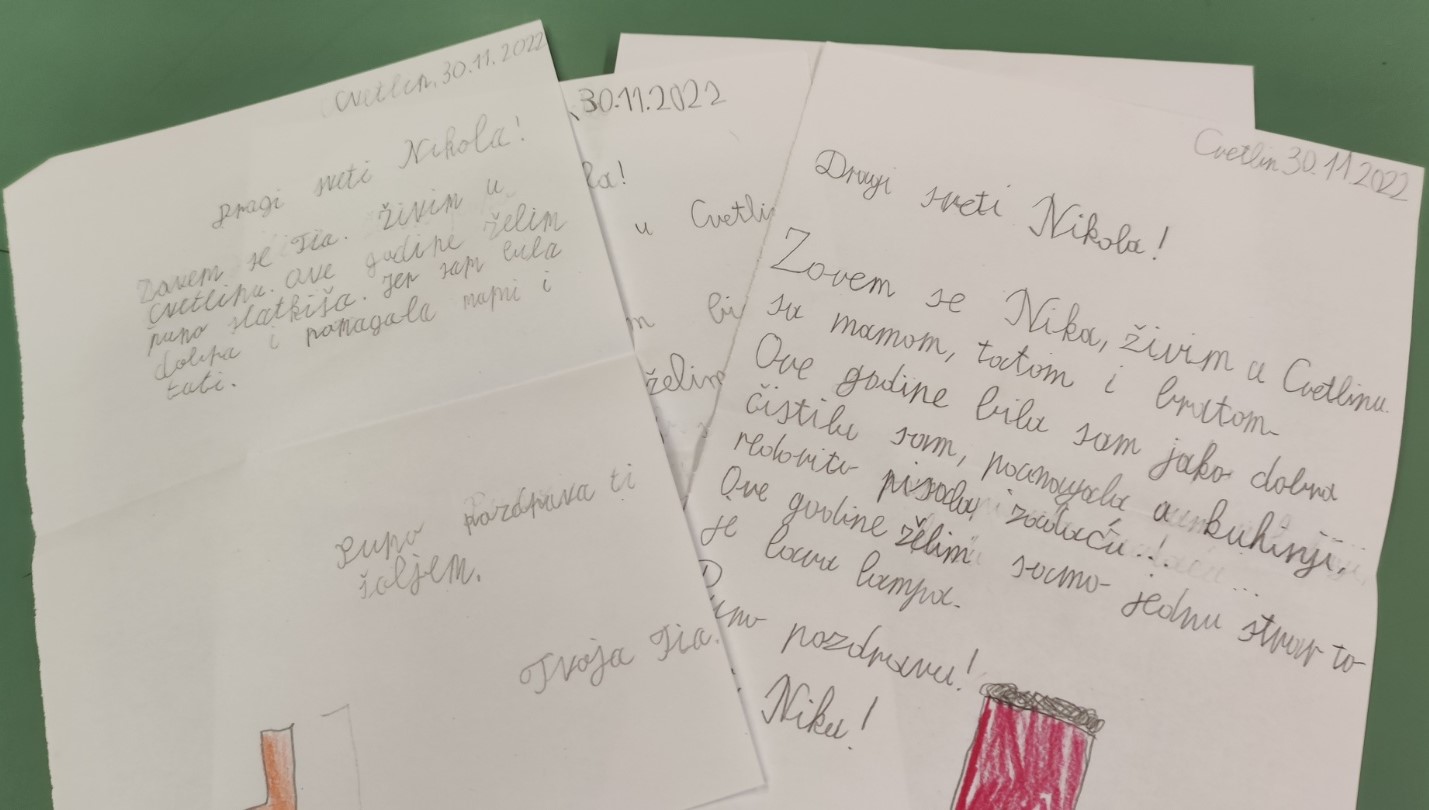 Cvetlin, 30.11.2022
Dragi sveti Nikola!
Zovem se Tia. Živim u
Cvetlinu. Ove godine želim
puno slatkiša. Jer sam bila
dobra i pomagala mami i
tati.
Puno pozdrava ti
šaljem.
Tvoja Tia.
30.11.2022
la!
u Cvetli
m bi
želim
Cvetlin 30.11.2022
Dragi sveti Nikola!
Zovem se Nika, živim u Cvetlinu
sa mamom, tatom i bratom.
Ove godine bila sam jako dobra
čistila sam, pomagala u kuhinji,
redovito pisala zadaću..!
Ove godine želim samo jednu stvar to
je lava lampa.
Puno pozdrava!
Nika!